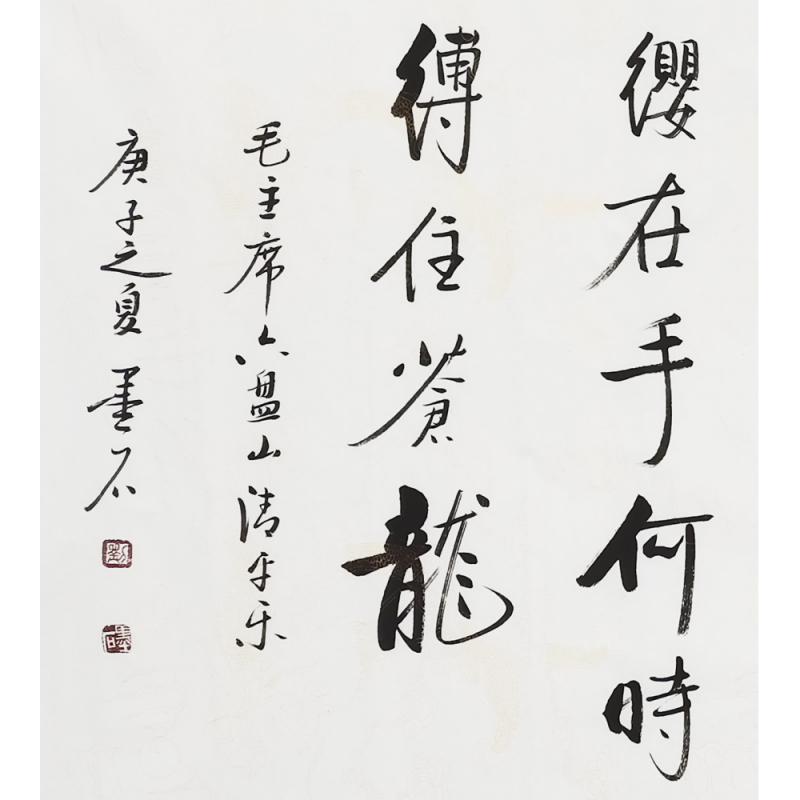 缨在手何時
缚住蒼龍
毛主席六盘山清平乐
庚子之夏墨石
劉